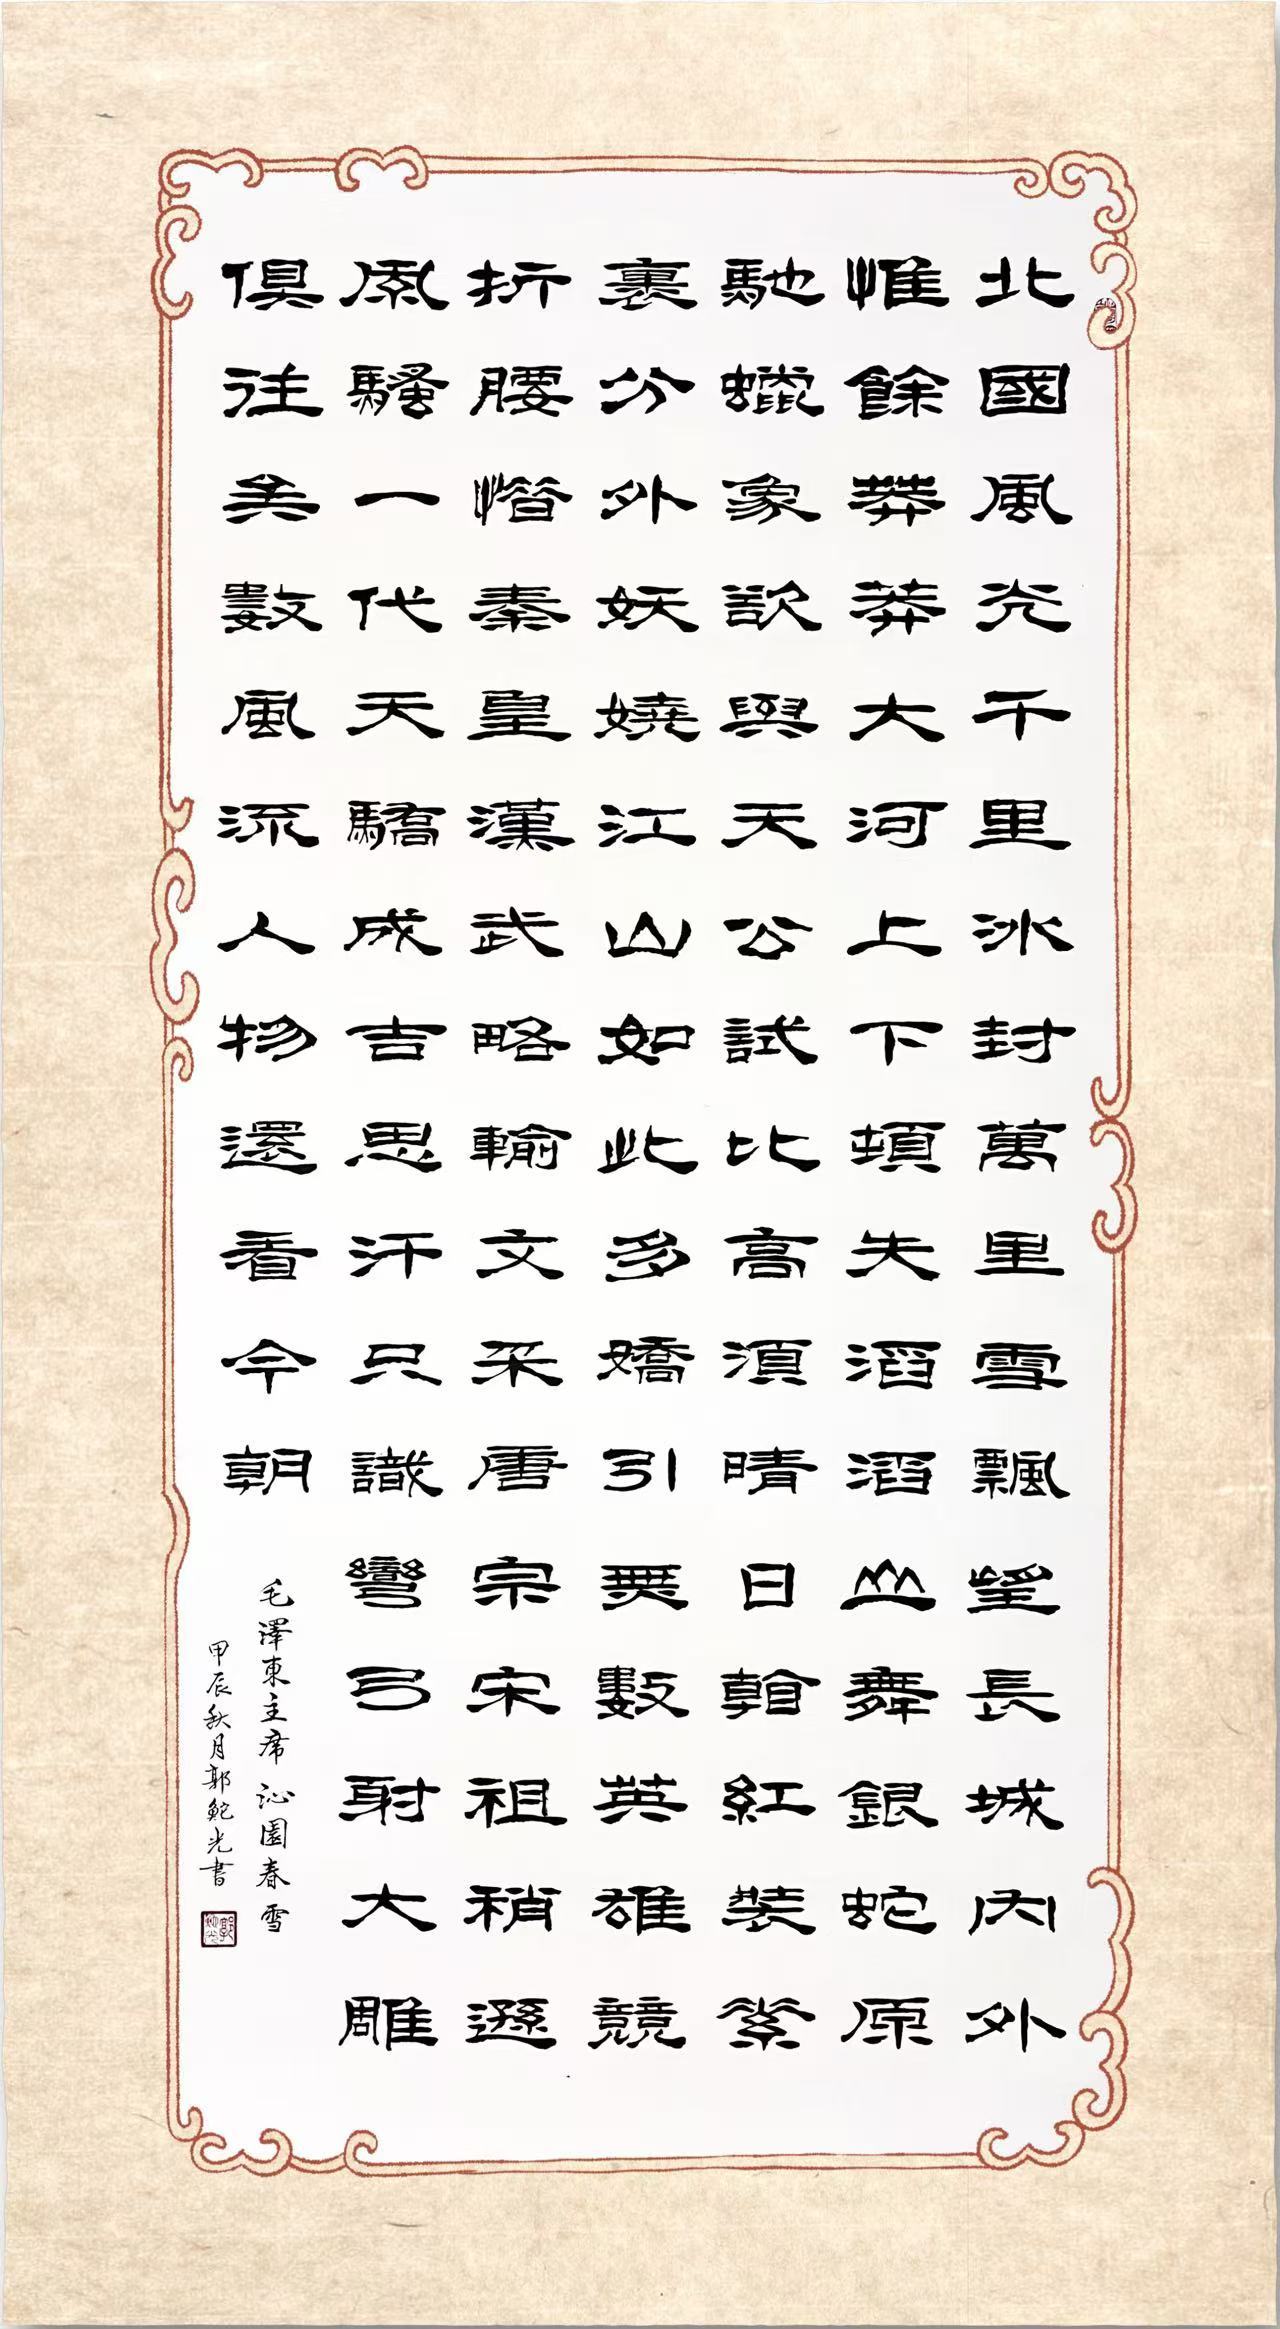 北國風光千里冰封萬里雪飄望長城內外
惟餘莽莽大河上下頓失滔滔山舞銀蛇原
馳蠟象欲與天公試比高須晴日看紅裝素
裏分外妖嬈江山如此多嬌引無數英雄競
折腰惜秦皇漢武略輸文采唐宗宋祖稍遜
風騷一代天驕成吉思汗只識彎弓射大雕
俱往矣數風流人物還看今朝
毛澤東主席沁園春雪
甲辰秋月郭光書